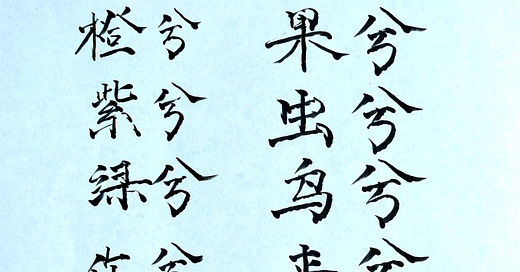 橙兮 果兮
紫兮 虫兮
绿兮 鸟兮
兮 兮